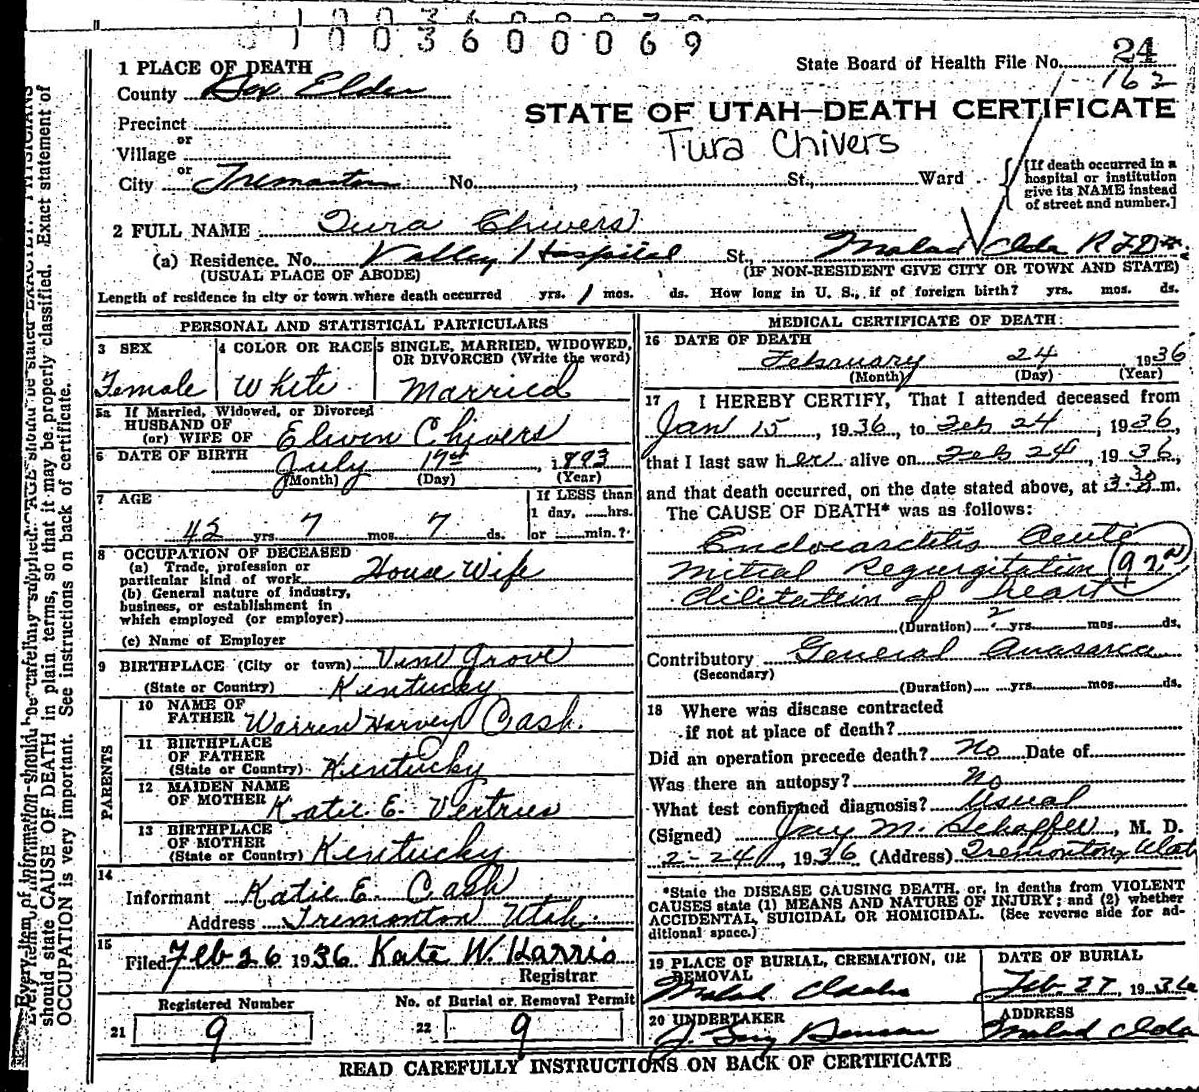 1003600069
State Board of Health File No. 24
163
1 PLACE OF DEATH
County Box Elder
STATE OF UTAH—DEATH CERTIFICATE
Precinct
Tura Chivers
or
Village
or
City Tremonton No. , St., Ward
[If death occurred in a hospital or institution give its NAME instead of street and number.]
2 FULL NAME Tura Chivers
(a) Residence. No. Valley Hospital St., Malad Ida R.F.D.
(USUAL PLACE OF ABODE) (IF NON-RESIDENT GIVE CITY OR TOWN AND STATE)
Length of residence in city or town where death occurred yrs. 1 mos. ds. How long in U. S., if of foreign birth? yrs. mos. ds.
PERSONAL AND STATISTICAL PARTICULARS
3 SEX 4 COLOR OR RACE 5 SINGLE, MARRIED, WIDOWED, OR DIVORCED (Write the word)
Female White Married
5a If Married, Widowed, or Divorced
HUSBAND OF
(or) WIFE OF Elwin Chivers
6 DATE OF BIRTH July 17th, 1893
(Month) (Day) (Year)
7 AGE If LESS than
1 day, hrs.
42 yrs. 7 mos. 7 ds. or min.?
8 OCCUPATION OF DECEASED
(a) Trade, profession or
particular kind of work House Wife
(b) General nature of industry,
business, or establishment in
which employed (or employer)
(c) Name of Employer
9 BIRTHPLACE (City or town) Vine Grove
(State or Country) Kentucky
PARENTS
10 NAME OF
FATHER Warren Harvey Cash.
11 BIRTHPLACE
OF FATHER
(State or Country) Kentucky
12 MAIDEN NAME
OF MOTHER Katie E. Vertries
13 BIRTHPLACE
OF MOTHER
(State or Country) Kentucky
14
Informant Katie E. Cash
Address Tremonton Utah.
15
Filed Feb 26 1936 Kate W. Harris
Registrar
Registered Number No. of Burial or Removal Permit
21 9 22 9
MEDICAL CERTIFICATE OF DEATH:
16 DATE OF DEATH
February 24 1936
(Month) (Day) (Year)
17 I HEREBY CERTIFY, That I attended deceased from
Jan 15, 1936, to Feb 24, 1936,
that I last saw her alive on Feb 24, 1936,
and that death occurred, on the date stated above, at 3:30 m.
The CAUSE OF DEATH* was as follows:
Endocarditis Acute
Mitral Regurgitation (92a)
Dilitation of heart
(Duration) 2 yrs. mos. ds.
Contributory General Anasarca
(Secondary)
(Duration) yrs. mos. ds.
18 Where was disease contracted
if not at place of death?
Did an operation precede death? No Date of
Was there an autopsy? No
What test confirmed diagnosis? Usual
(Signed) Jay M. Schaffer, M. D.
2-24, 1936 (Address) Tremonton, Utah
*State the DISEASE CAUSING DEATH, or, in deaths from VIOLENT
CAUSES state (1) MEANS AND NATURE OF INJURY; and (2) whether
ACCIDENTAL, SUICIDAL OR HOMICIDAL. (See reverse side for ad-
ditional space.)
19 PLACE OF BURIAL, CREMATION, OR REMOVAL DATE OF BURIAL
Malad Idaho Feb. 27, 1936
20 UNDERTAKER ADDRESS
Malad Ida
READ CAREFULLY INSTRUCTIONS ON BACK OF CERTIFICATE
should state CAUSE OF DEATH in plain terms, so that it may be properly classified. Exact statement of
OCCUPATION is very important. See instructions on back of certificate.